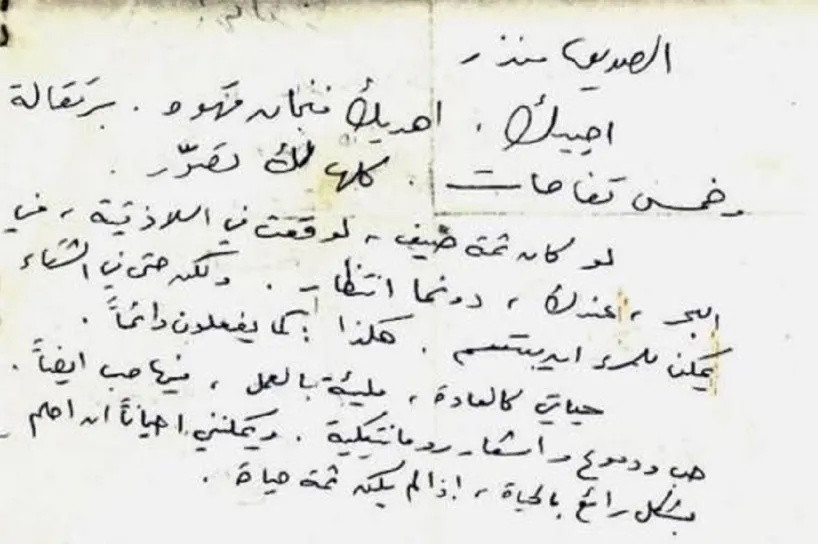 الصديق منذر
احييك . اهديك فنجان قهوة . برتقالة
وخمس تفاحات . كلها لك تصوّر .
لو كان ثمة صيف ، لوقعت في اللاذقية ، في
البحر ، عندك ، دونما انتظار . ولكن حتى في الشتاء
يمكن للمرء ان يبتسم . هكذا : كما يفعلون دائماً .
حياتي كالعادة ، مليئة بالعمل ، فيها حب ايضاً .
حب ودموع واشعار رومانتيكية . ويمكنني احياناً ان احلم
بشكل رائع بالحياة ، اذا لم يكن ثمة حياة .